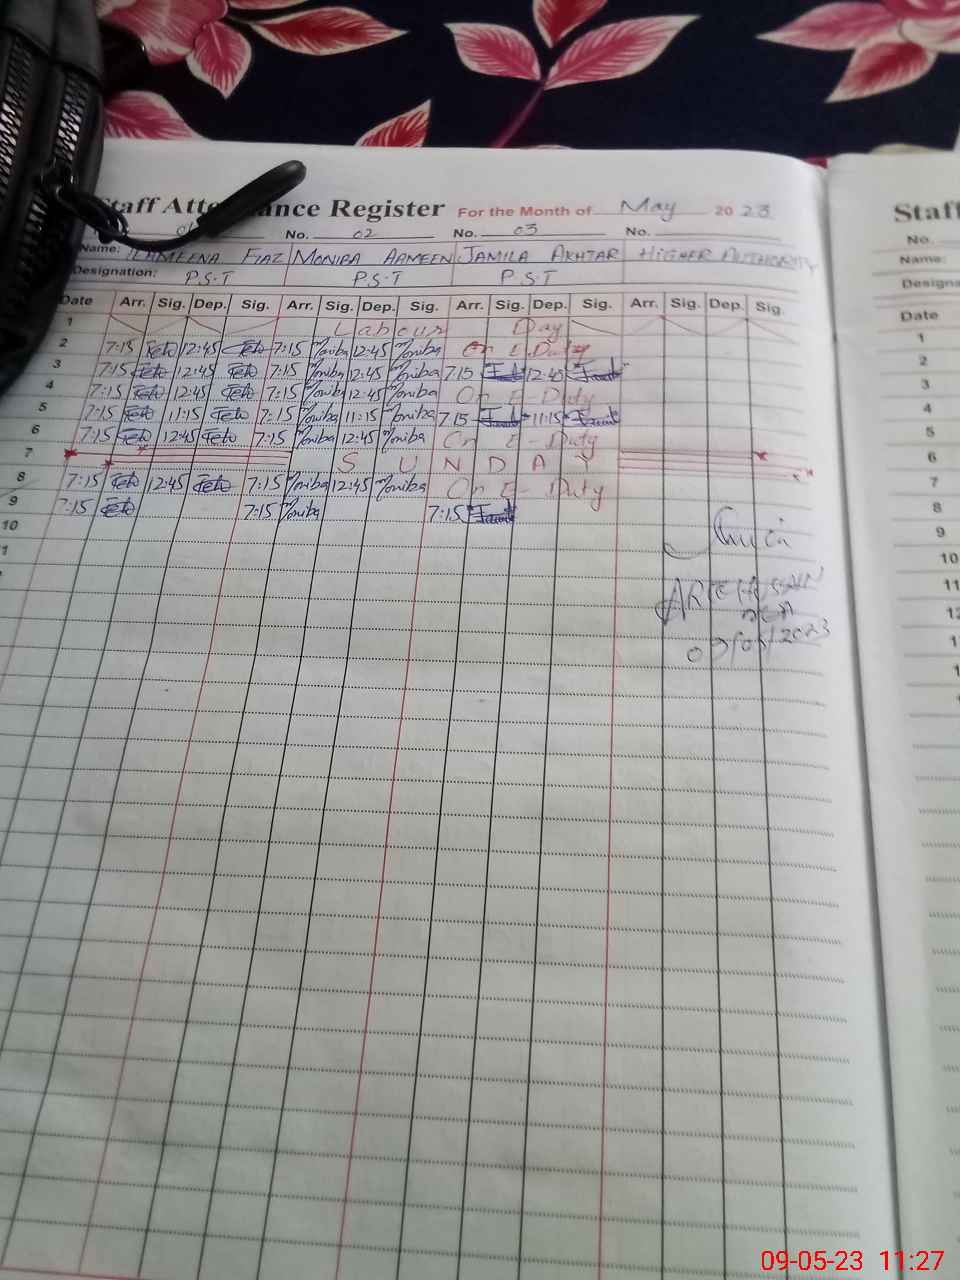 Staff Attendance Register For the Month of May 2023
No. 02 No. 03 No.
Name: FIAZ MONIBA AAMEEN JAMILA AKHTAR HIGHER AUTHORITY
Designation: P.S.T P.S.T P.S.T
Date Arr. Sig. Dep. Sig. Arr. Sig. Dep. Sig. Arr. Sig. Dep. Sig. Arr. Sig. Dep. Sig.
1 Labour Day
2 7:15 12:45 7:15 Moniba 12:45 Moniba On E-Duty
3 7:15 12:45 7:15 Moniba 12:45 Moniba 7:15 12:45
4 7:15 12:45 7:15 Moniba 12:45 Moniba On E-Duty
5 7:15 11:15 7:15 Moniba 11:15 Moniba 7:15 11:15
6 7:15 12:45 7:15 Moniba 12:45 Moniba On E-Duty
7 SUNDAY
8 7:15 12:45 7:15 Moniba 12:45 Moniba On E-Duty
9 7:15 7:15 Moniba 7:15
10
09/05/2023
Staff
No.
Name:
Date
1
2
3
4
5
6
7
8
9
10
11
09-05-23 11:27